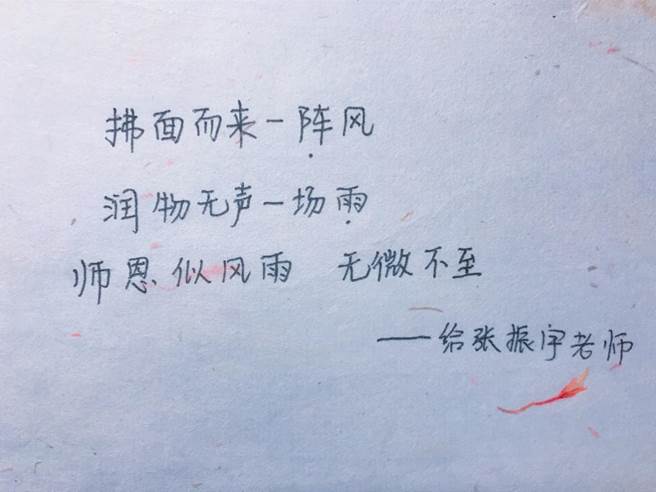 拂面而来一阵风
润物无声一场雨
师恩似风雨 无微不至
——给张振宇老师